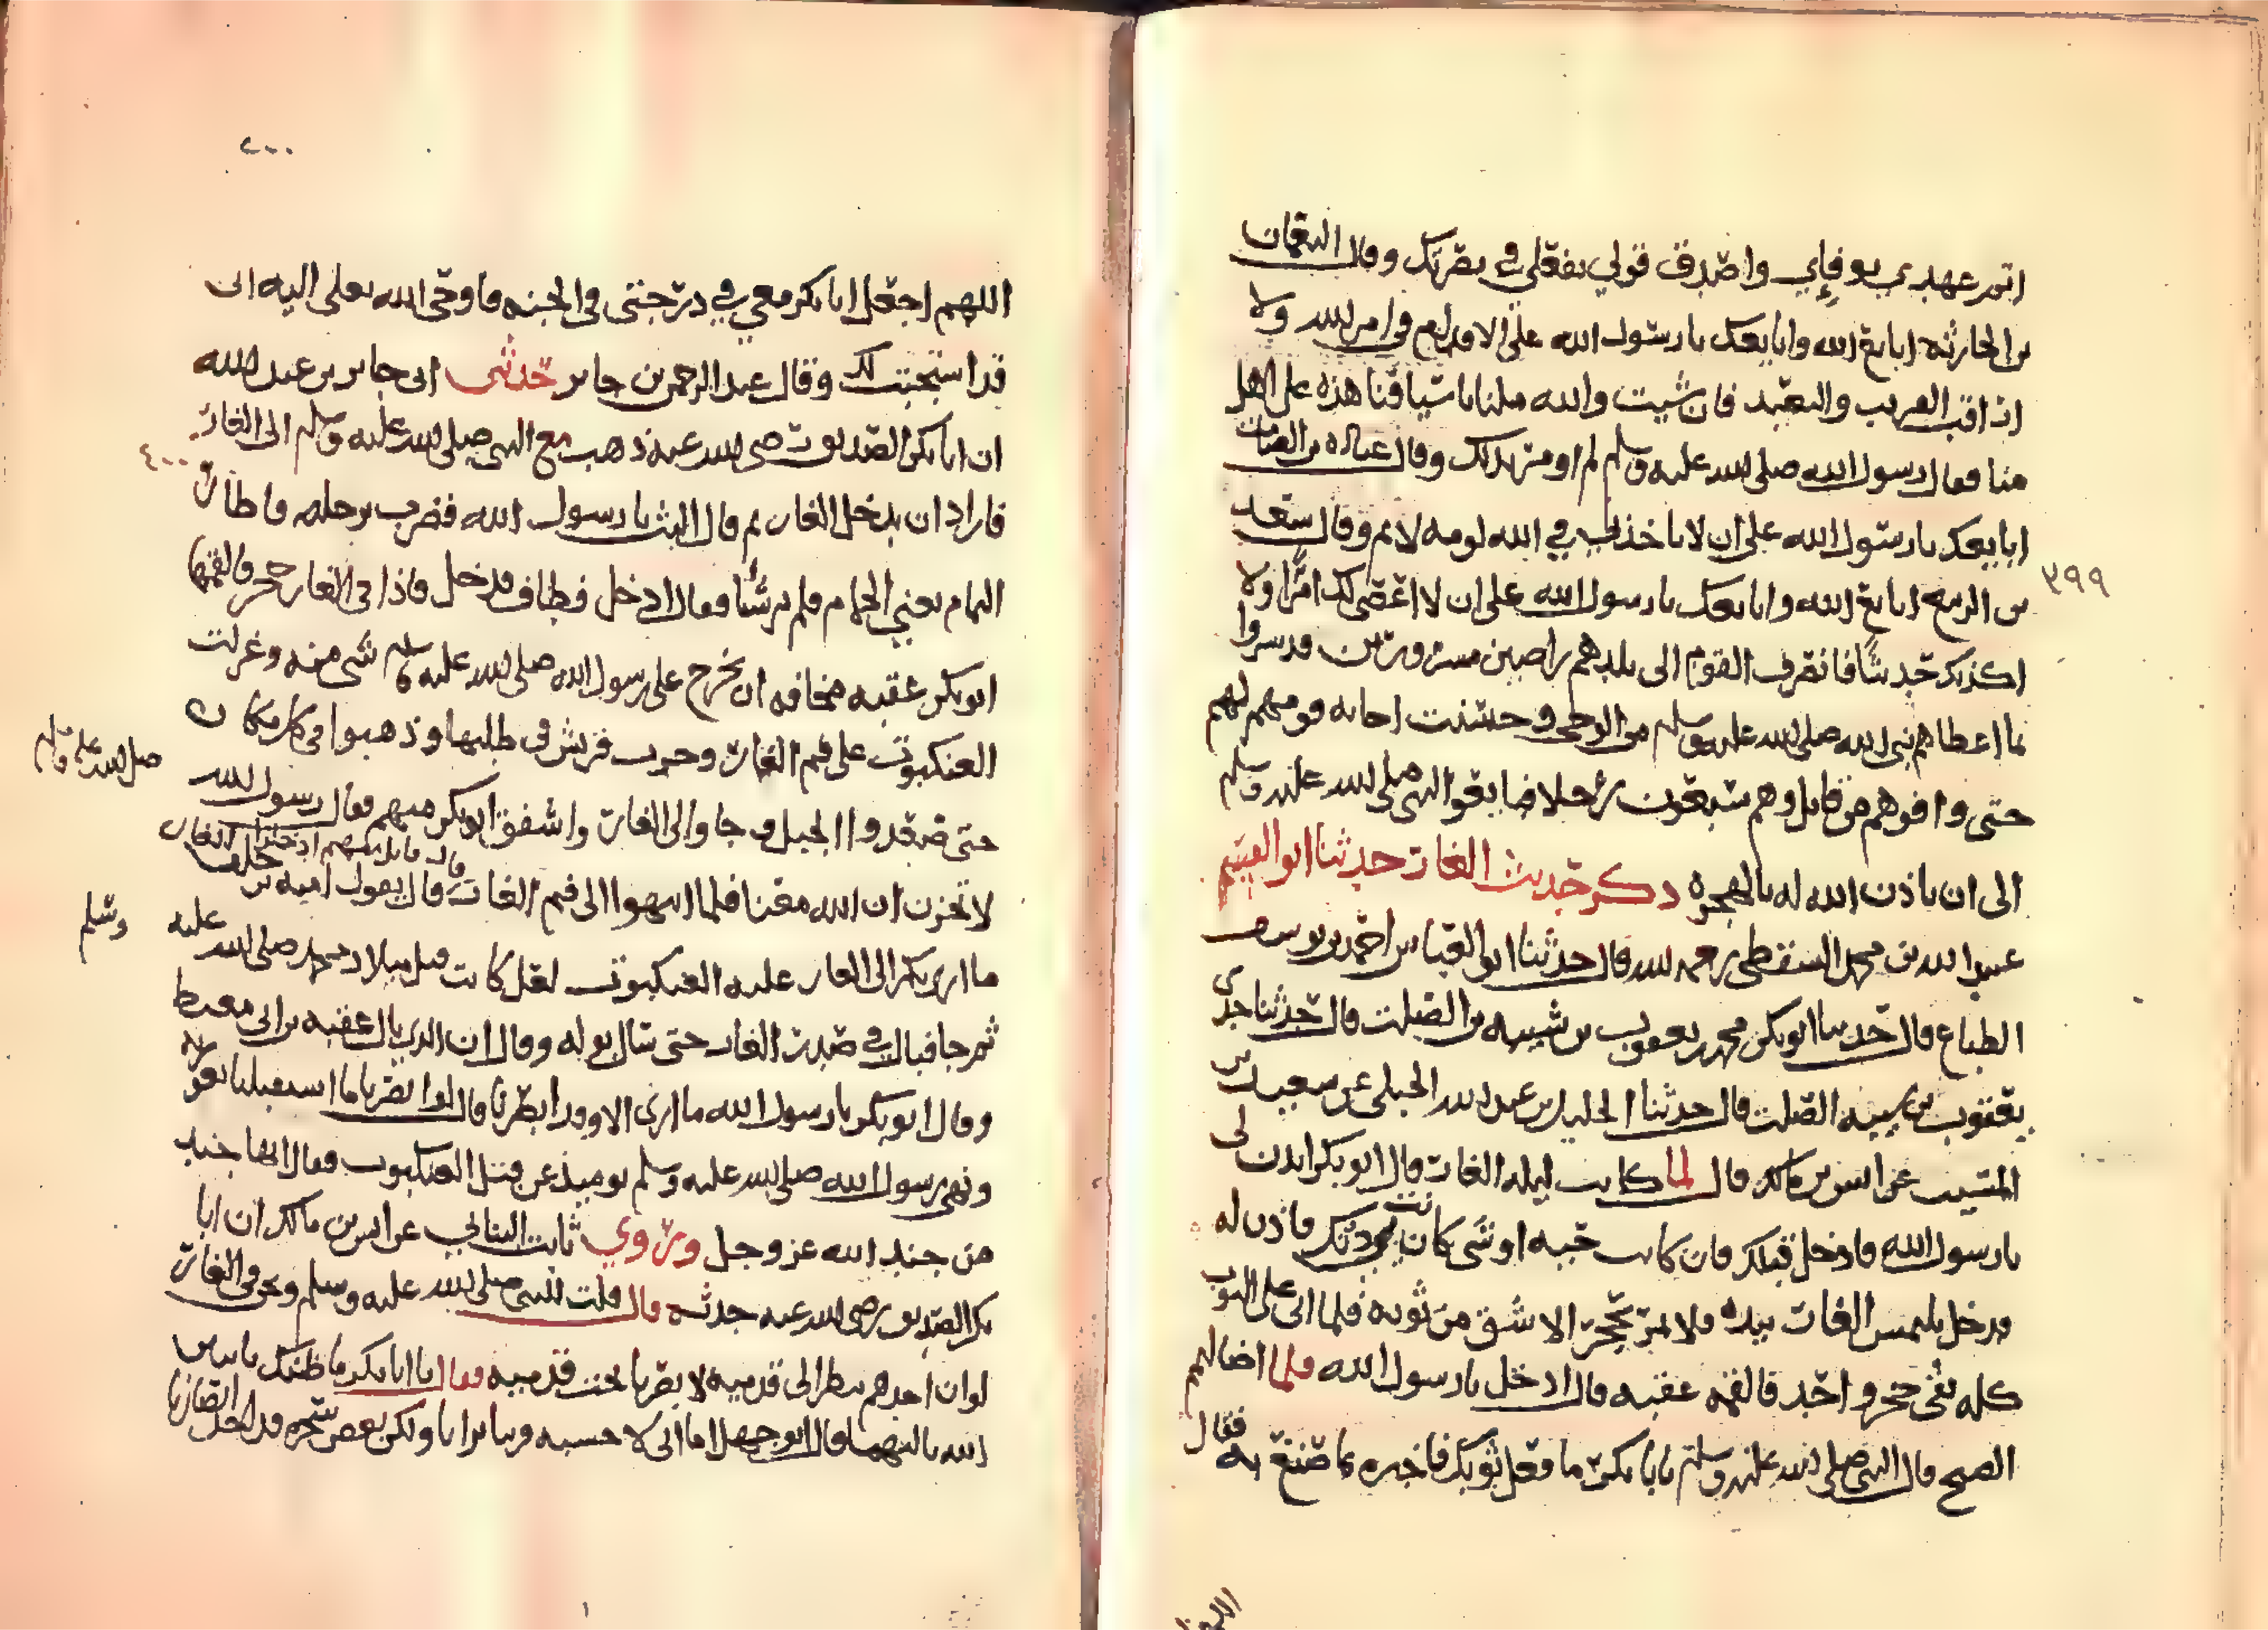 اتمم عهدي بوفاي واصدق قولي بفعلي في نصرتك وقال النعمان
بن الحارثه ابايع الله وابايعك يا رسول الله على الاقدام في امر الله ولا
اراقب القريب والبعيد فان شيت والله ملنا باسيافنا هذه على اهل
منا فقال رسول الله صلى الله عليه وسلم لم اومر بذلك وقال عباده بن الصامت
ابايعك يا رسول الله على ان لا ياخذني في الله لومه لايم وقال سعد
بن الربيع ابايع الله وابايعك يا رسول الله على ان لا اعصي لك امرا ولا
٣٩٩
اكذبك حديثا فانصرف القوم الى بلدهم راضين مسرورين قد سروا
بما اعطاهم نبي الله صلى الله عليه وسلم من الوحي وحسنت اجابه قومهم لهم
حتى وافوهم من قابل وهم سبعون رجلا فبايعوا النبي صلى الله عليه وسلم
الى ان ياذن الله له بالهجره ذكر حديث الغار حدثنا ابو القسم
عبيد الله بن محمد السقطي رحمه الله قال حدثنا ابو العباس احمد بن يوسف
الطباع قال حدثنا ابو بكر محمد بن يعقوب بن شيبه بن الصلت قال حدثنا جدي
يعقوب بن شيبه الصلت قال حدثنا الخليل بن عبد الله الجبلي عن سعيد بن
المسيب عن انس بن مالك قال لما كانت ليله الغار قال ابو بكر ايذن لي
يا رسول الله فادخل قبلك فان كانت حيه او شي كانت بي دونك فاذن له
فدخل يلتمس الغار بيده فلا يمر بجحر الا شق من ثوبه فلما اتى على الثوب
كله بقي جحر واحد فالقمه عقبه قال ادخل يا رسول الله فلما اضا لهم
الصبح قال النبي صلى الله عليه وسلم يا با بكر ما فعل ثوبك فاخبره بما صنع به فقال
٤٠٠
اللهم اجعل ابا بكر معي في درجتي في الجنه فاوحى الله تعلى اليه انى
قد استجبت لك وقال عبد الرحمن بن جابر حدثني ابي جابر بن عبد الله
ان ابا بكر الصديق رضي الله عنه ذهب مع النبي صلى الله عليه وسلم الى الغار
٤٠٠
فاراد ان يدخل الغار ثم قال البث يا رسول الله فضرب برجله فاطار
اليمام يعني الحمام فلم ير شيا فقال ادخل فطاف فدخل فاذا في الغار جحر فالقمها
ابو بكر عقبه مخافه ان يخرج على رسول الله صلى الله عليه وسلم شي منه وغزلت
العنكبوت على فم الغار وخرجت قريش في طلبها وذهبوا في كل مكان
حتى صعدوا الجبل وجاوا الى الغار واشفق ابو بكر منهم فقال رسول الله
صلى الله عليه وسلم
لا تحزن ان الله معنا فلما انتهوا الى فم الغار قال قايل منهم ادخلوا الغار فقال امية بن خلف
ما اربكم الى الغار عليه العنكبوت لقد كانت قبل ميلاد محمد صلى الله عليه وسلم
ثم جا فبال في صدر الغار حتى سال بوله وقال ان الذي بال عقبه بن ابي معيط
وقال ابو بكر يا رسول الله ما ارى الا وقد ابصرنا قال لو ابصرنا ما استقبلنا بعورته
ونهى رسول الله صلى الله عليه وسلم يوميذ عن قتل العنكبوت فقال انها جند
من جند الله عز وجل وروي ثابت البناني عن انس بن مالك ان ابا
بكر الصديق رضي الله عنه حدثه قال قلت للنبي صلى الله عليه وسلم ونحن في الغار
لو ان احدهم نظر الى قدميه لابصرنا تحت قدميه فقال يا ابا بكر ما ظنك باثنين
الله ثالثهما وقال ابو جهل اما اني لاحسبه قريبا يرانا ولكن بعض سحره قد اخذ ابصارنا